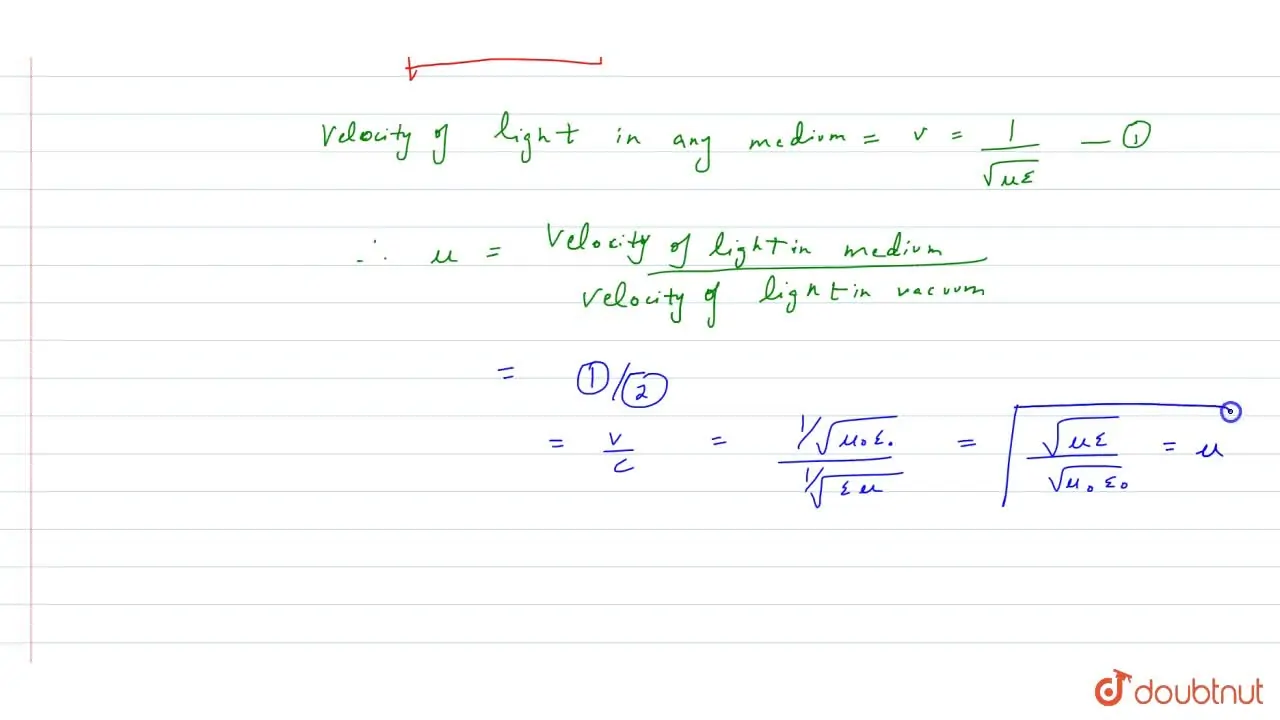 Velocity of light in any medium = v = 1/√με — ①
∴ μ = Velocity of light in medium / Velocity of light in vacuum
= ①/②
= v/c = (1/√μ₀ε₀) / (1/√εμ) = √με / √μ₀ε₀ = μ
doubtnut